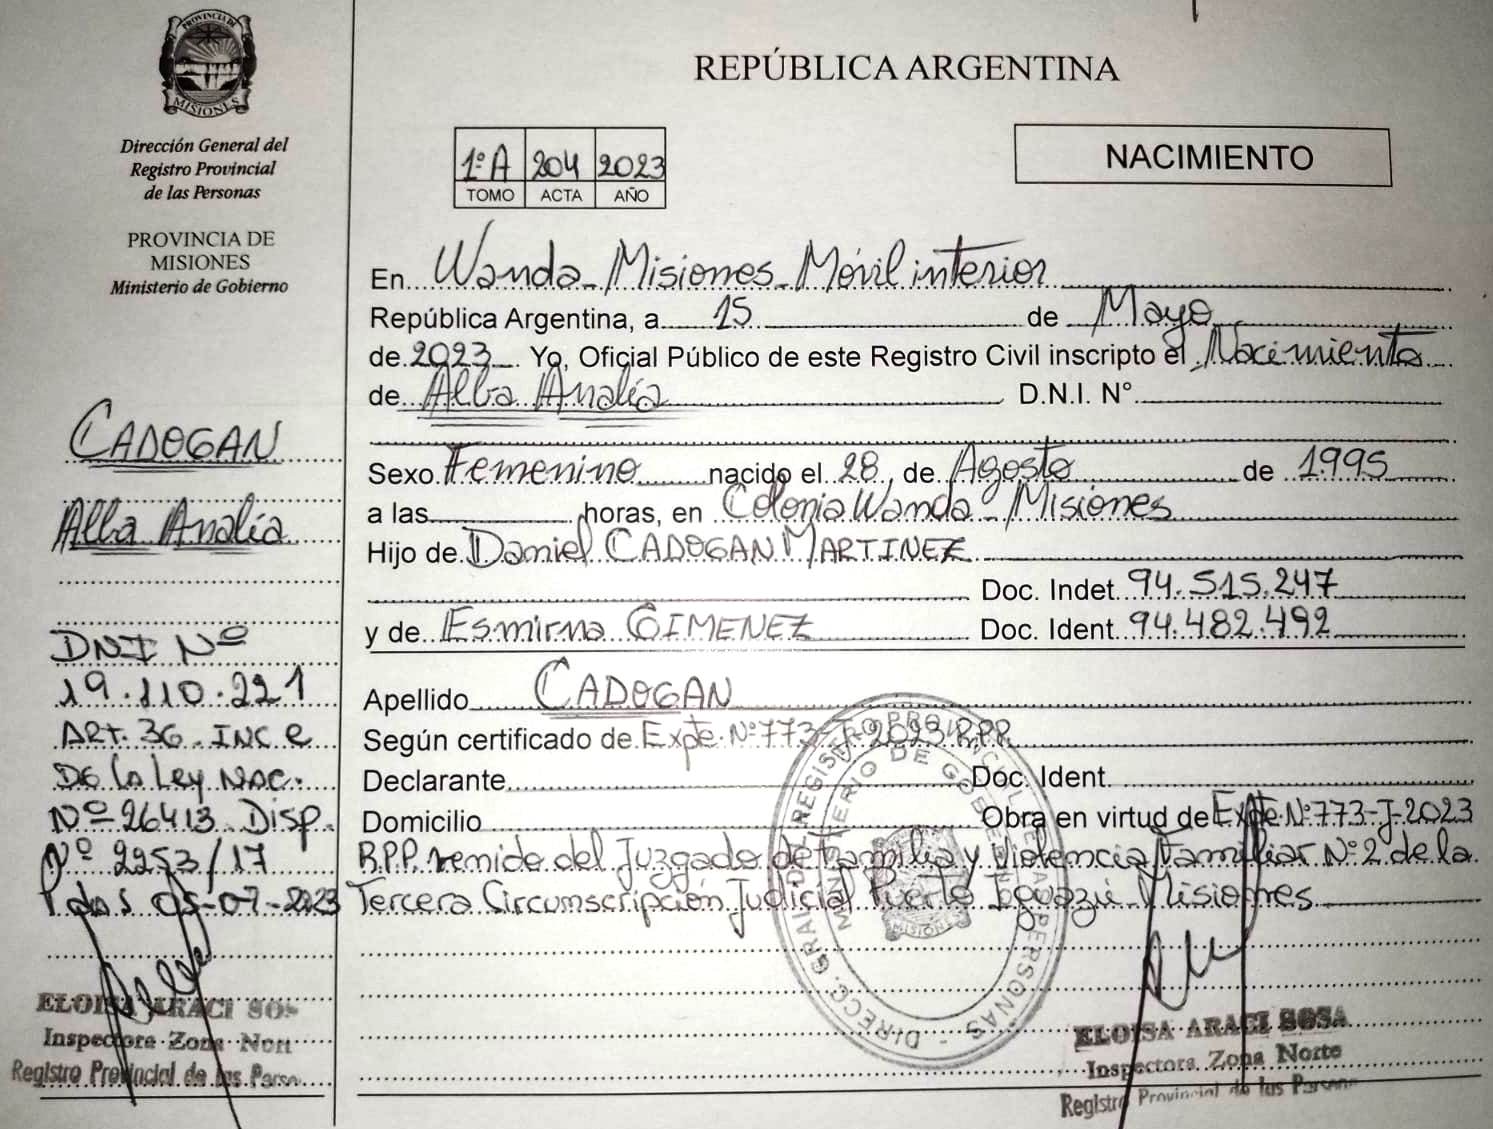 PROVINCIA DE
MISIONES
Dirección General del
Registro Provincial
de las Personas
PROVINCIA DE
MISIONES
Ministerio de Gobierno
CADOGAN
Alba Analía
DNI Nº
19.110.221
ART. 36. INC e
De la Ley NAC.
Nº 26413 Disp.
Nº 2253/17
05-07-2023
ELOISA ARACI SOS
Inspectora Zona Nort
Registro Provincial de las Perso
REPÚBLICA ARGENTINA
NACIMIENTO
1º A 204 2023
TOMO ACTA AÑO
En Wanda - Misiones - Móvil interior
República Argentina, a 15 de Mayo
de 2023 Yo, Oficial Público de este Registro Civil inscripto el Nacimiento
de Alba Analía D.N.I. N°
Sexo Femenino nacido el 28 de Agosto de 1995
a las horas, en Colonia Wanda - Misiones
Hijo de Daniel CADOGAN MARTINEZ
Doc. Indet 94.515.247
y de Esmirna GIMENEZ Doc. Ident 94.482.492
Apellido CADOGAN
Según certificado de Expte Nº 773-J-2023 R.P.P.
Declarante Doc. Ident.
Domicilio Obra en virtud de Expte Nº 773-J-2023
R.P.P. remido del Juzgado de Familia y Violencia Familiar Nº 2 de la
Tercera Circunscripción Judicial Puerto Iguazú Misiones
DIRECC. GRAL. D REGISTRO PROVINCIAL PERSONAS
MINISTERIO DE GOBIERNO
MISIONES
ELOISA ARACI SOSA
Inspectora Zona Norte
Registro Provincial de las Persona